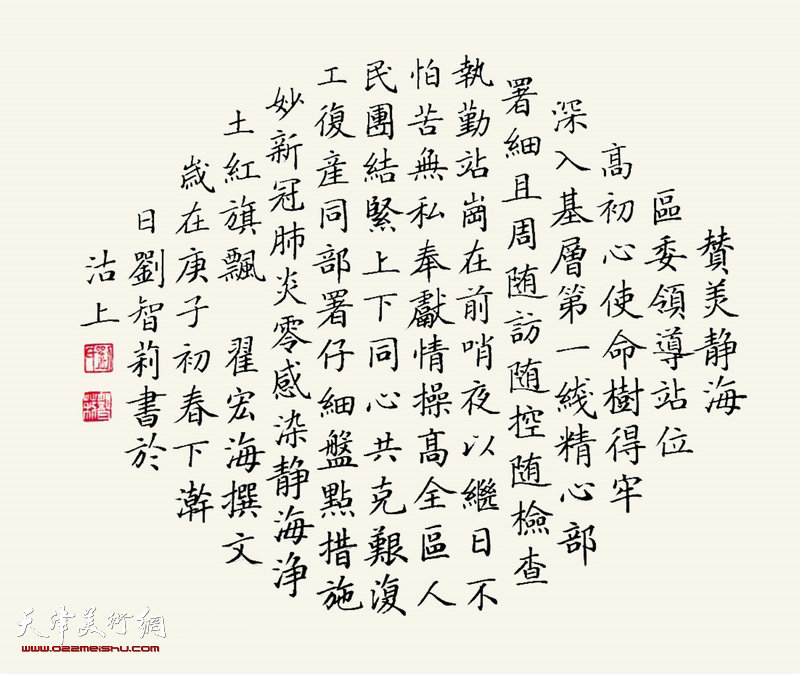 贊美静海
區委領導站位
高初心使命樹得牢
深入基層第一綫精心部
署細且周随訪随控随檢查
執勤站崗在前哨夜以繼日不
怕苦無私奉獻情操高全區人
民團結緊上下同心共克艱復
工復産同部署仔細盤點措施
妙新冠肺炎零感染静海净
土紅旗飄 翟宏海撰文
歲在庚子初春下澣
日劉智莉書於
沽上
天津美術網
www.022meishu.com